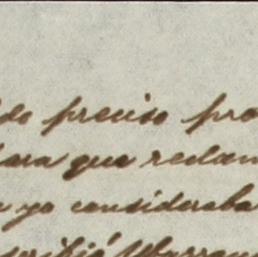 do preciso pro
para que reclam
yo consideraba